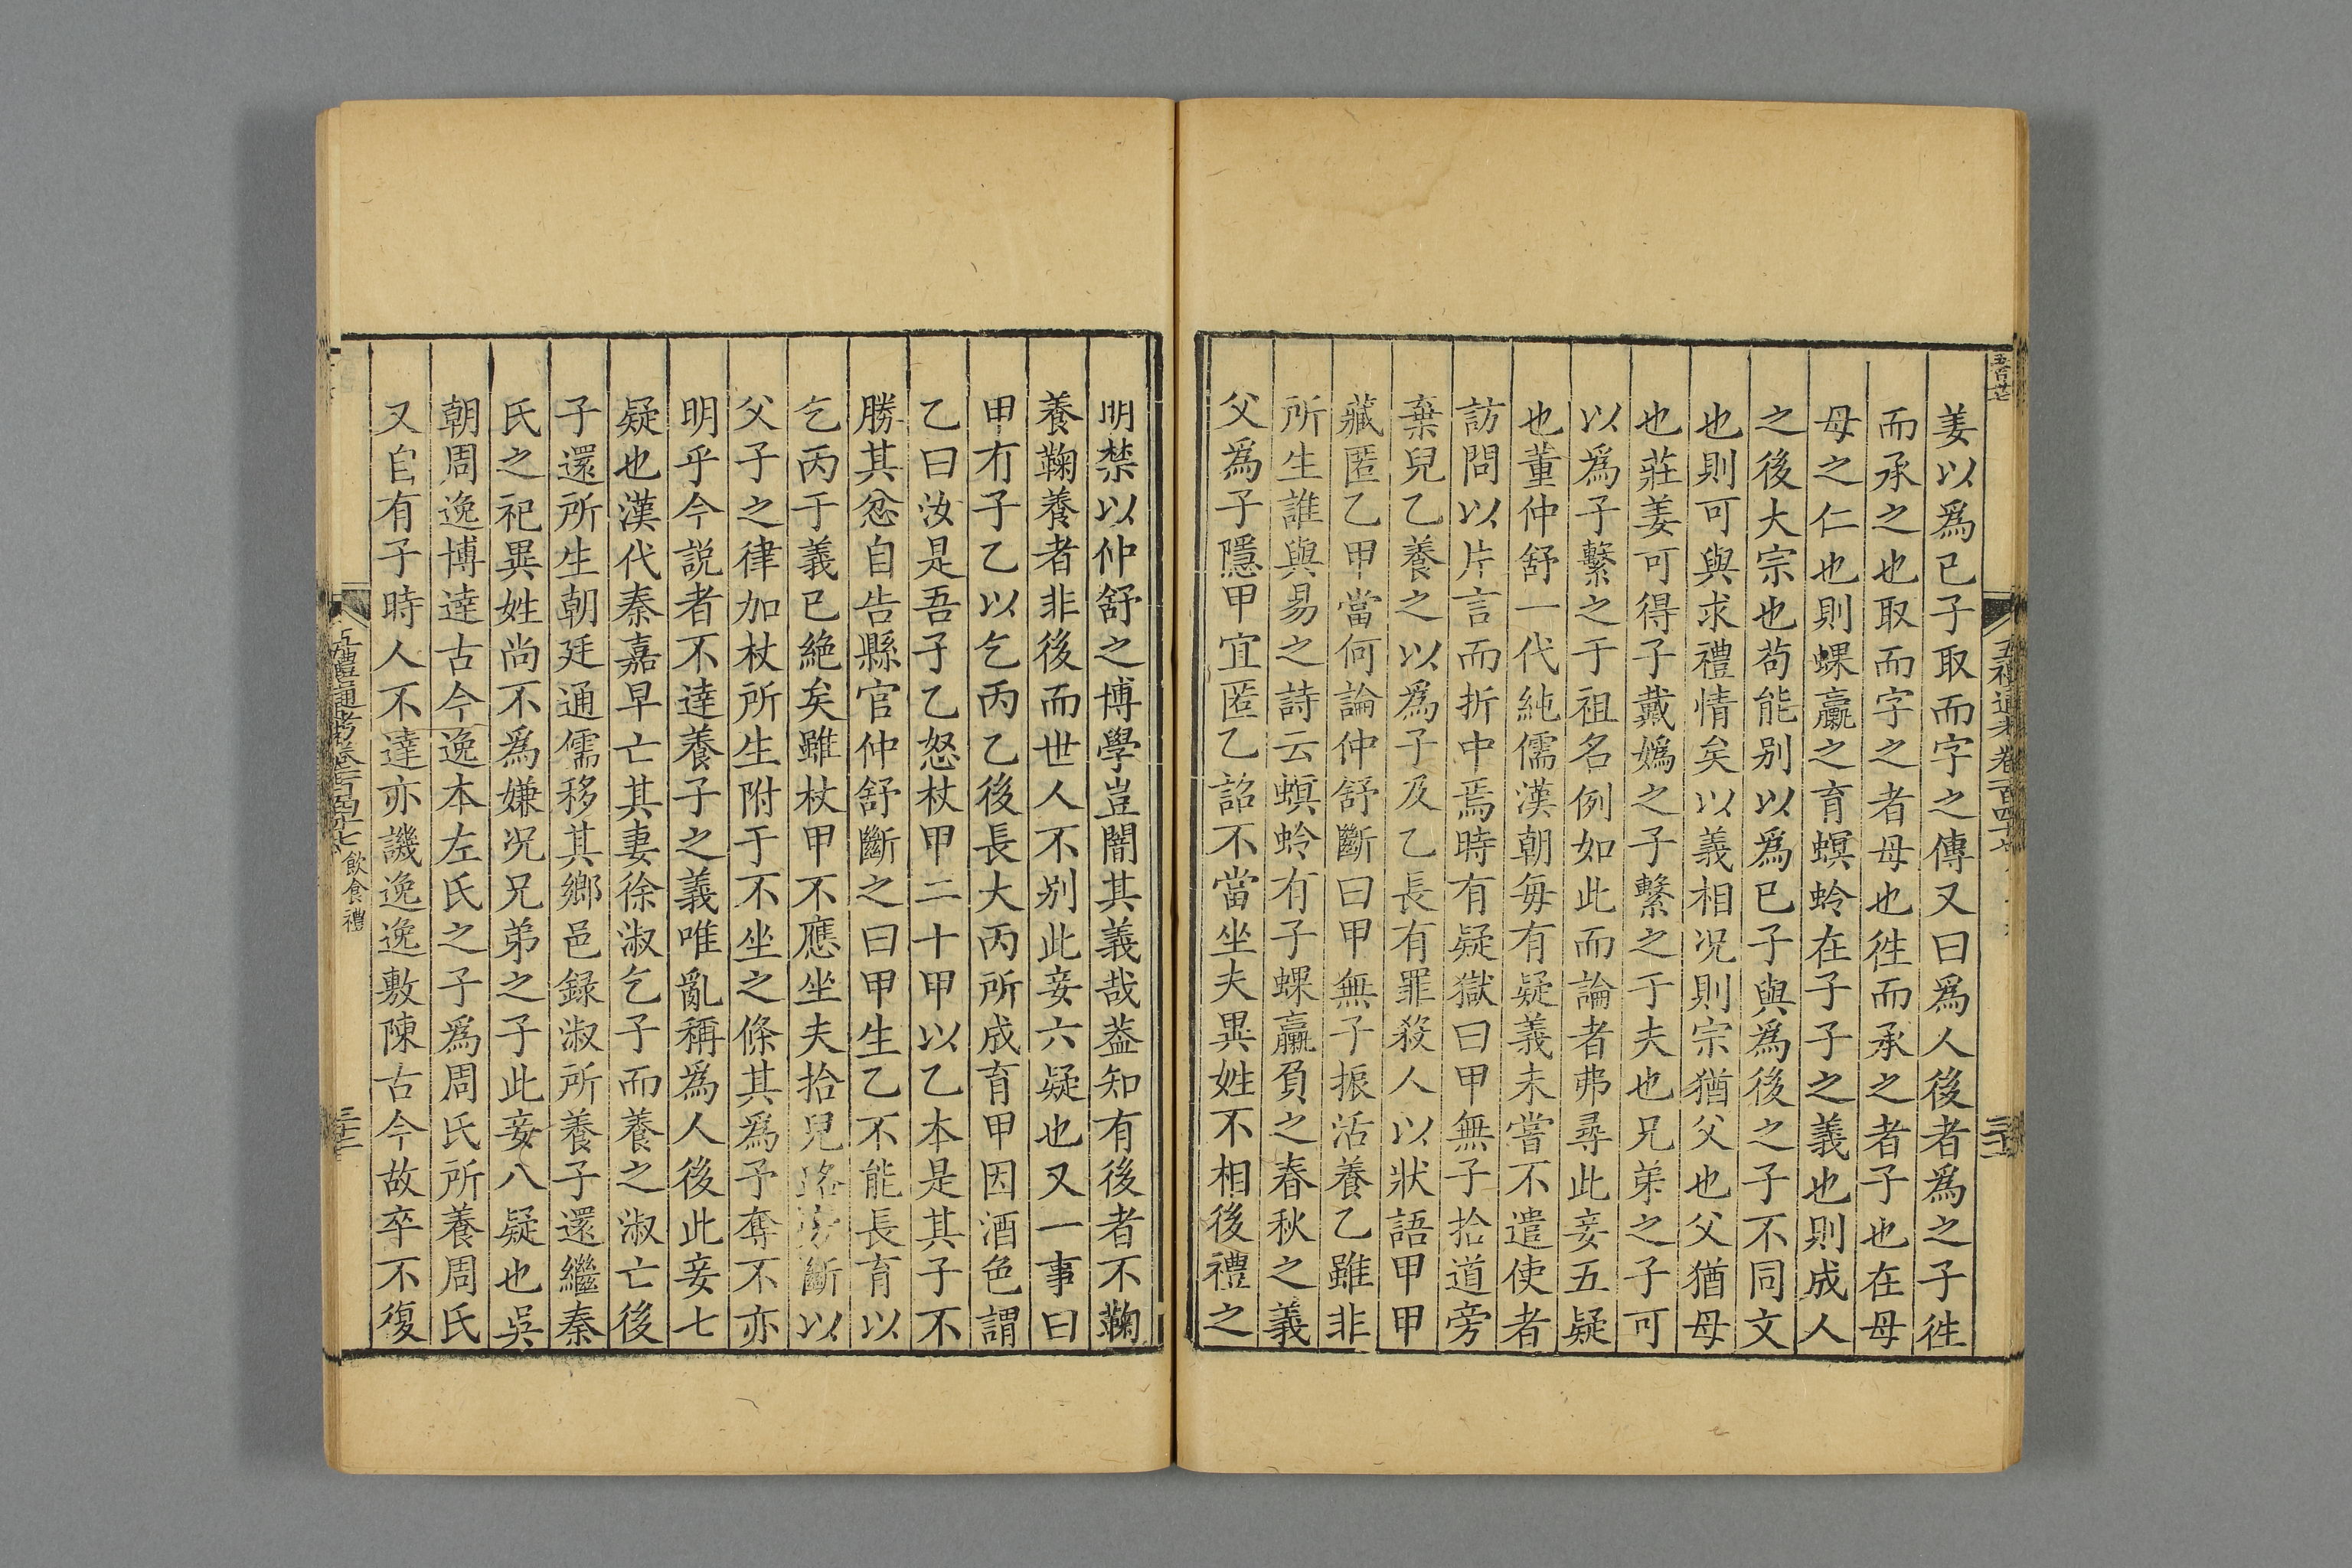 姜以爲已子取而字之傳又曰爲人後者爲之子徃
而承之也取而字之者母也徃而承之者子也在母
母之仁也則蜾蠃之育螟蛉在子子之義也則成人
之後大宗也茍能别以爲已子與爲後之子不同文
也則可與求禮情矣以義相况則宗猶父也父猶母
也莊姜可得子戴嬀之子繫之于夫也兄弟之子可
以爲子繫之于祖名例如此而論者弗尋此妾五疑
也董仲舒一代純儒漢朝每有疑義未嘗不遣使者
訪問以片言而折中焉時有疑獄曰甲無子拾道旁
棄兒乙養之以爲子及乙長有罪殺人以狀語甲甲
藏匿乙甲當何論仲舒斷曰甲無子振活養乙雖非
所生誰與易之詩云螟蛉有子蜾蠃負之春秋之義
父爲子隱甲宜匿乙詔不當坐夫異姓不相後禮之
明禁以仲舒之博學豈闇其義哉葢知有後者不鞠
養鞠養者非後而世人不别此妾六疑也又一事曰
甲有子乙以乞丙乙後長大丙所成育甲因酒色謂
乙曰汝是吾子乙怒杖甲二十甲以乙本是其子不
勝其忿自告縣官仲舒斷之曰甲生乙不能長育以
乞丙于義已絶矣雖杖甲不應坐夫拾兒路旁斷以
父子之律加杖所生附于不坐之條其爲予奪不亦
明乎今説者不達養子之義唯亂稱爲人後此妾七
疑也漢代秦嘉早亡其妻徐淑乞子而養之淑亡後
子還所生朝廷通儒移其鄉邑録淑所養子還繼秦
氏之祀異姓尚不爲嫌况兄弟之子此妾八疑也吳
朝周逸博達古今逸本左氏之子爲周氏所養周氏
又自有子時人不達亦譏逸逸敷陳古今故卒不復
五禮通考卷一百四十七 飲食禮
三十二